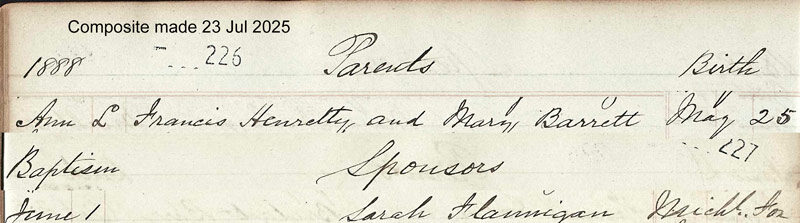 Composite made 23 Jul 2025
1888 226 Parents Birth
Ann L Francis Henretty, and Mary, Barrett May 25
227
Baptism Sponsors
June 1 Sarah Flannigan Michl. Fox